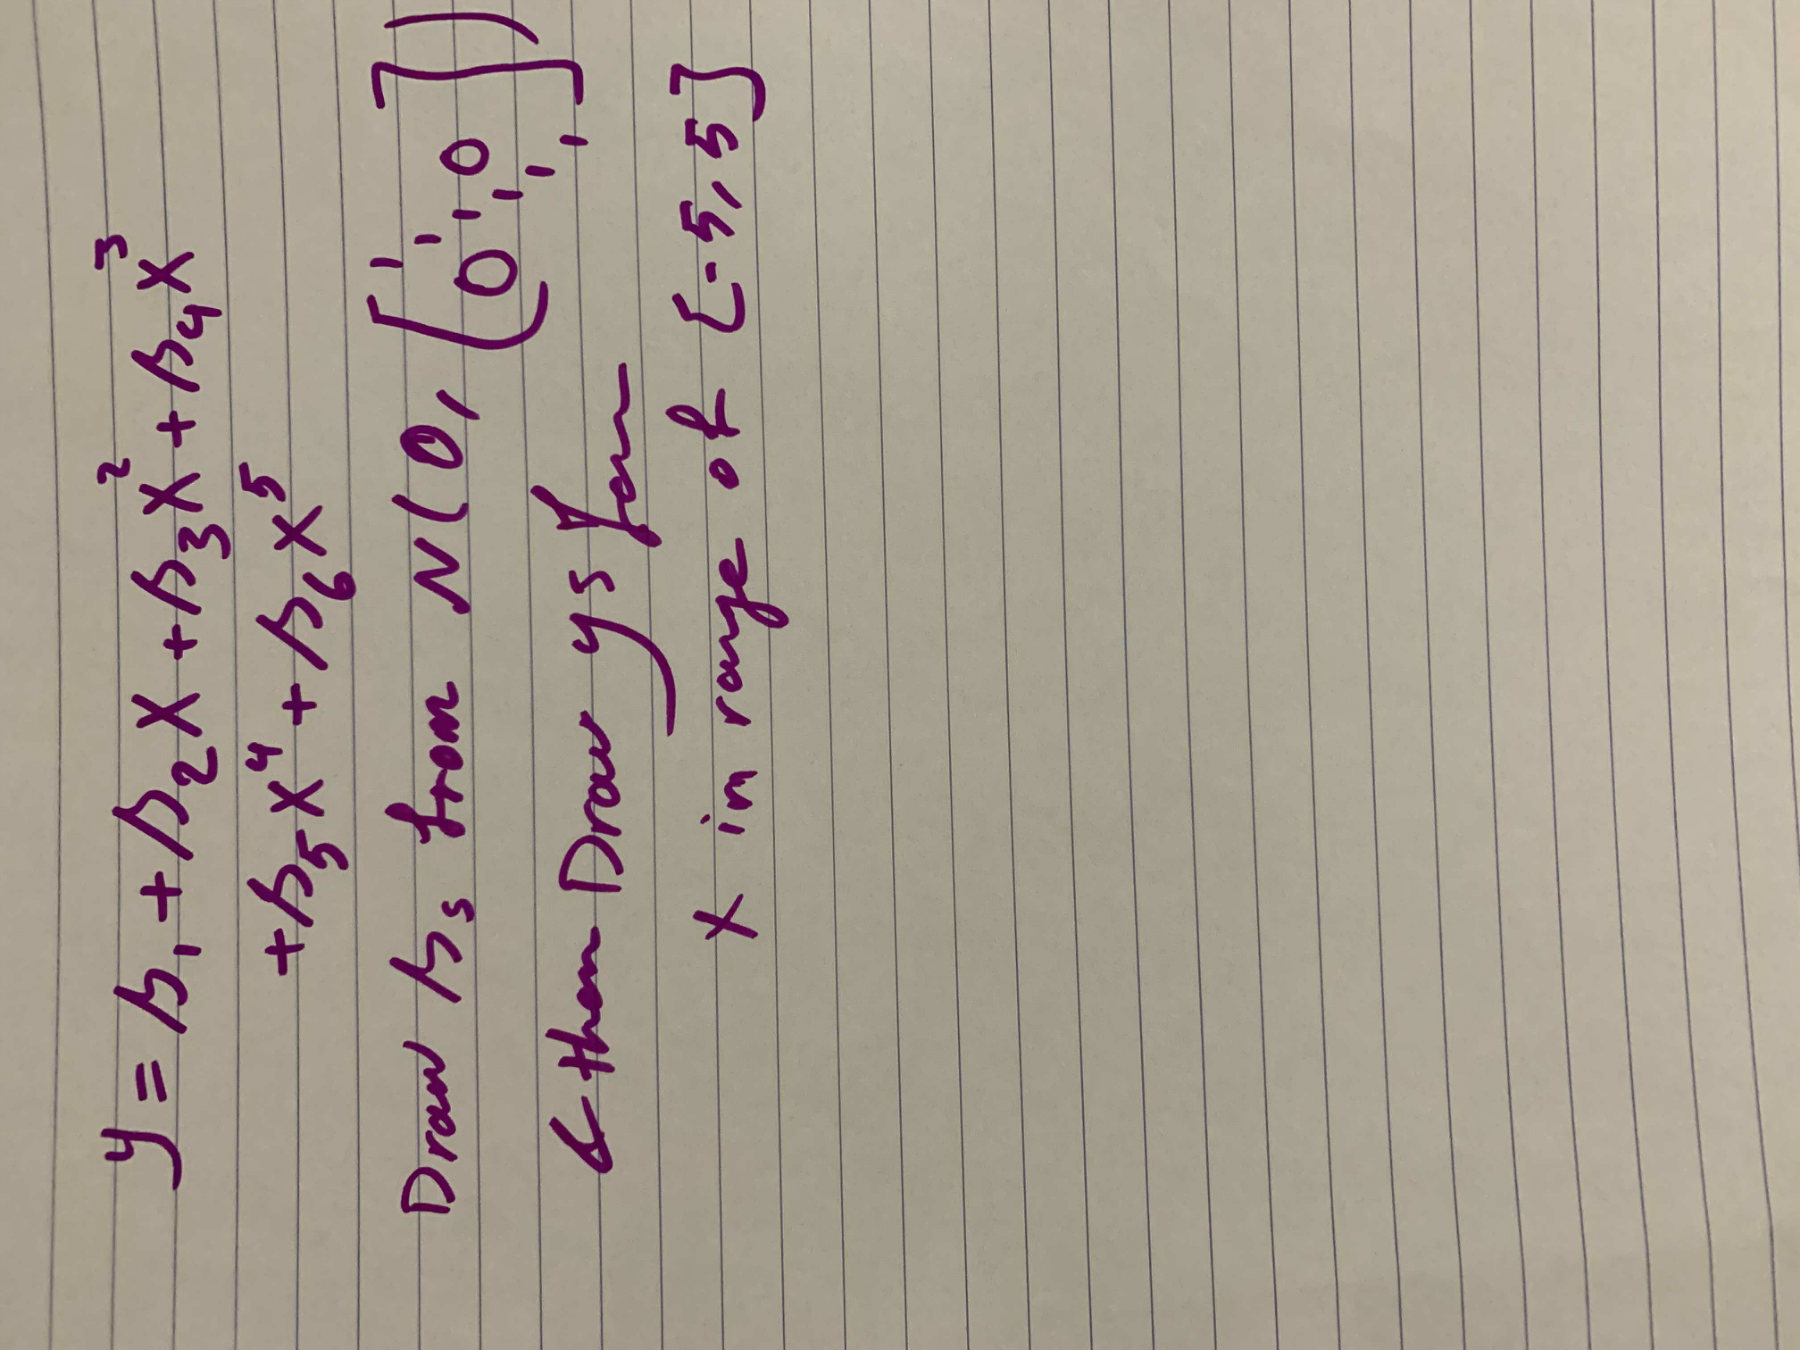 y = β₁ + β₂x + β₃x² + β₄x³
+ β₅x⁴ + β₆x⁵
Draw βs from N(0, [1 1 1 1 1 1 0 0])
& then Draw ys for
x in range of [-5, 5]